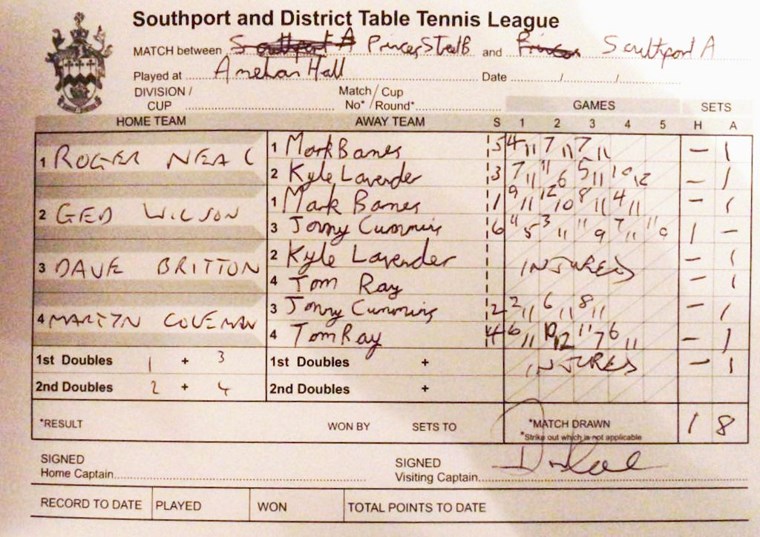 Southport and District Table Tennis League
MATCH between Southport A Princes St B and Princes Southport A
Played at Ainsdale Hall Date / /
DIVISION / CUP Match/Cup No* / Round* GAMES SETS
HOME TEAM AWAY TEAM S 1 2 3 4 5 H A
1 ROGER NEAL 1 Mark Banes 5 4 11 7 11 7 11 – 1
2 Kyle Lavender 3 7 11 11 6 5 11 10 12 – 1
2 GED WILSON 1 Mark Banes 1 9 11 12 10 8 11 4 11 – 1
3 Jonny Cummins 6 11 5 3 11 11 9 7 11 11 9 1 –
3 DAVE BRITTON 2 Kyle Lavender INJURED – 1
4 Tom Ray – 1
4 MARTYN COLEMAN 3 Jonny Cummins 2 2 11 6 11 8 11 – 1
4 Tom Ray 4 6 11 10 12 11 7 6 11 – 1
1st Doubles 1 + 3 1st Doubles + INJURED – 1
2nd Doubles 2 + 4 2nd Doubles +
*RESULT WON BY SETS TO *MATCH DRAWN 1 8
*Strike out which is not applicable
SIGNED Home Captain SIGNED Visiting Captain
RECORD TO DATE PLAYED WON TOTAL POINTS TO DATE